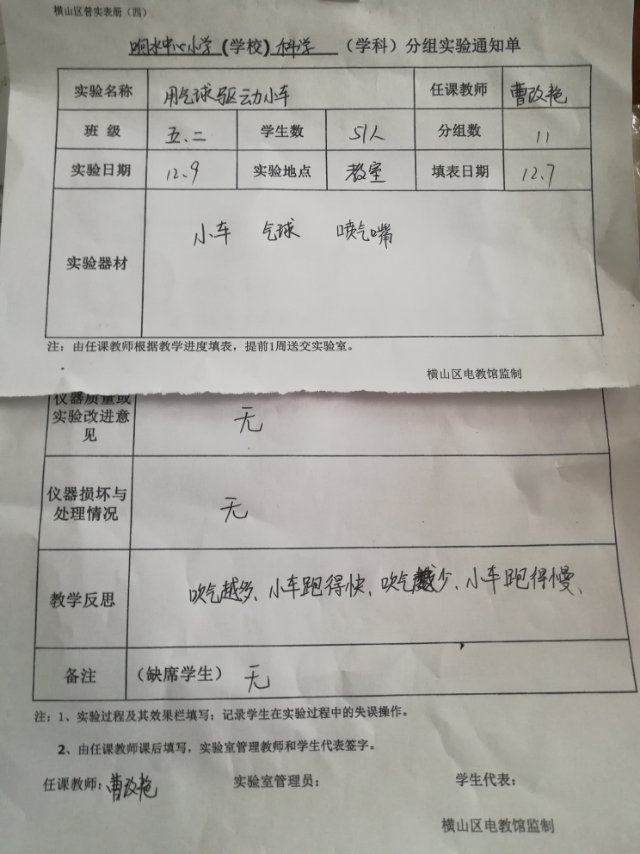 横山区普实表册（四）
响水中心小学（学校）科学（学科）分组实验通知单
实验名称 用气球驱动小车 任课教师 曹改艳
班 级 五.二 学生数 51人 分组数 11
实验日期 12.9 实验地点 教室 填表日期 12.7
实验器材 小车 气球 喷气嘴
注：由任课教师根据教学进度填表，提前1周送交实验室。
横山区电教馆监制
仪器质量或
实验改进意
见 无
仪器损坏与
处理情况 无
教学反思 吹气越多、小车跑得快、吹气越少、小车跑得慢、
备注 （缺席学生） 无
注：1、实验过程及其效果栏填写：记录学生在实验过程中的失误操作。
2、由任课教师课后填写，实验室管理教师和学生代表签字。
任课教师：曹改艳 实验室管理员： 学生代表：
横山区电教馆监制